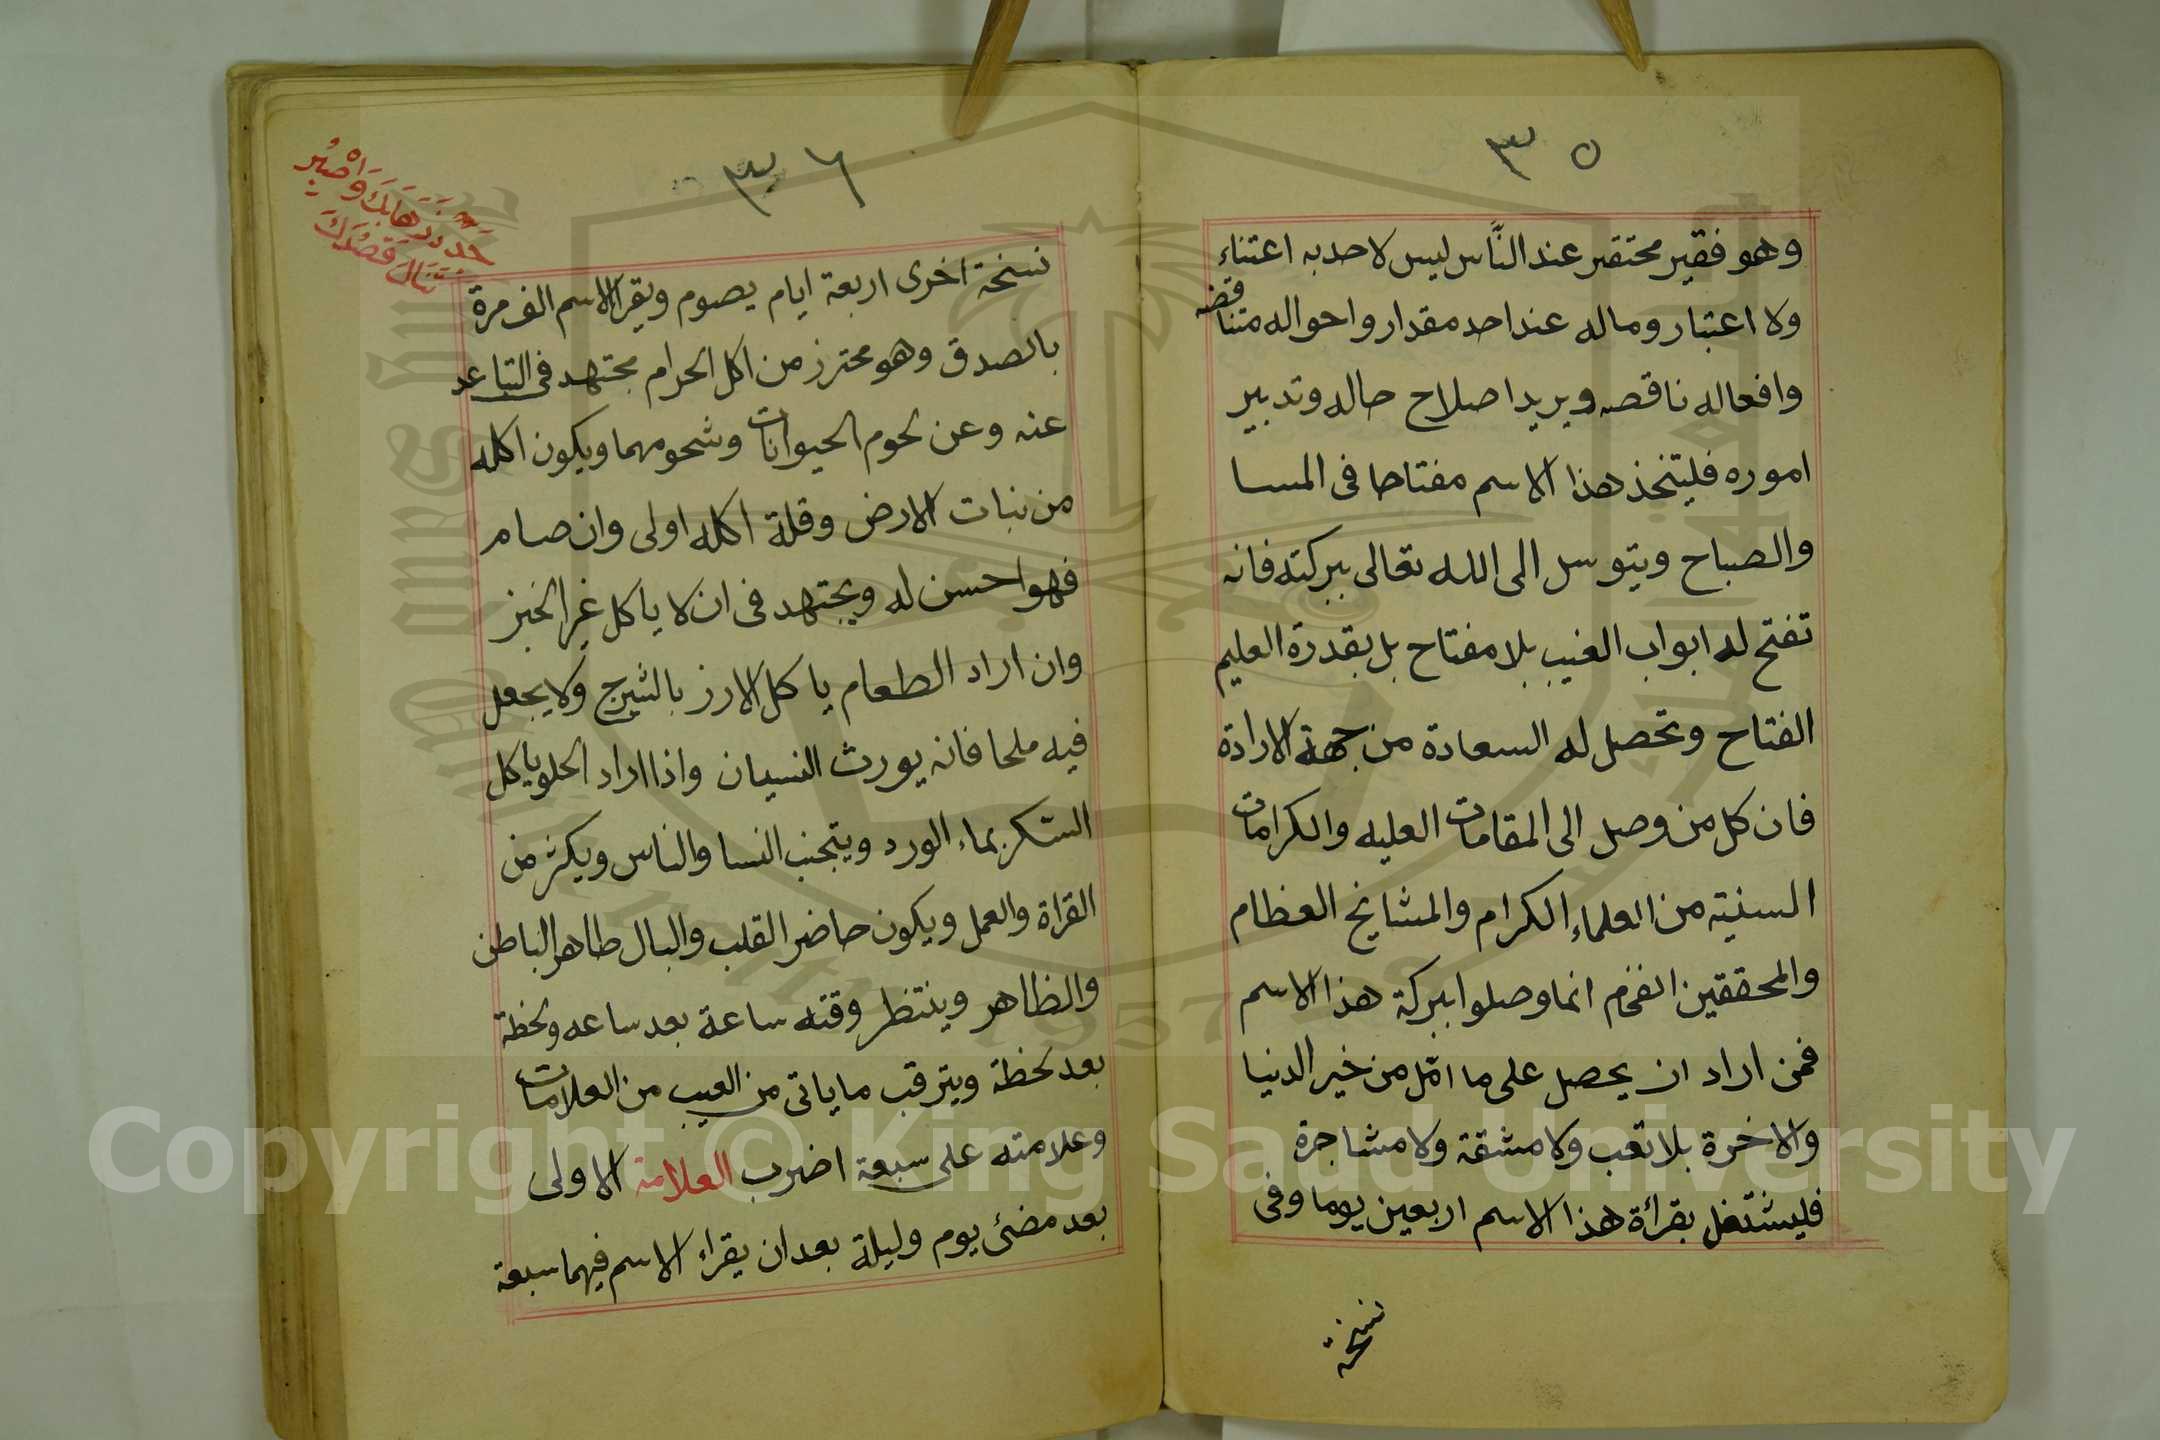 ٣٥
وهو فقير محتقر عند النّاس ليس لاحد به اعتناء
ولا اعتبار وماله عند احد مقدار واحواله متناقضه
وافعاله ناقصه ويريد اصلاح حاله وتدبير
اموره فليتخذ هذا الاسم مفتاحا فى المسا
والصباح ويتوسل الى الله تعالى ببركته فانه
تفتح له ابواب الغيب بلا مفتاح بل بقدرة العليم
الفتاح وتحصل له السعادة من جهة الارادة
فان كل من وصل الى المقامات العليه والكرامات
السنية من العلماء الكرام والمشايخ العظام
والمحققين الفخام انما وصلوا ببركة هذا الاسم
فمن اراد ان يحصل على ما امّل من خير الدنيا
والاخرة بلا تعب ولا مشقة ولا مشاجرة
فليشتغل بقرأة هذا الاسم اربعين يوما وفى
نسخة
٣٦
نسخة اخرى اربعة ايام يصوم ويقرا الاسم الف مرة
بالصدق وهو محترز من اكل الحرام مجتهد فى التباعد
عنه وعن لحوم الحيوانات وشحومهما ويكون اكله
من نبات الارض وقلة اكله اولى وان صام
فهو احسن له ويجتهد فى ان لا ياكل غير الخبز
وان اراد الطعام ياكل الارز بالشيرج ولا يجعل
فيه ملحا فانه يورث النسيان واذا اراد الحلو ياكل
السكر بماء الورد ويتجنب النسا والناس ويكثر من
القراة والعمل ويكون حاضر القلب والبال طاهر الباطن
والظاهر وينتظر وقته ساعة بعد ساعه ولحظة
بعد لحظة ويترقب ما ياتى من الغيب من العلامات
وعلامته على سبعة اضرب العلامة الاولى
بعد مضئ يوم وليلة بعد ان يقراء الاسم فيهما سبعة
وَاصْبِر
تَنَالَ قَصْدَكَ
Copyright © King Saud University